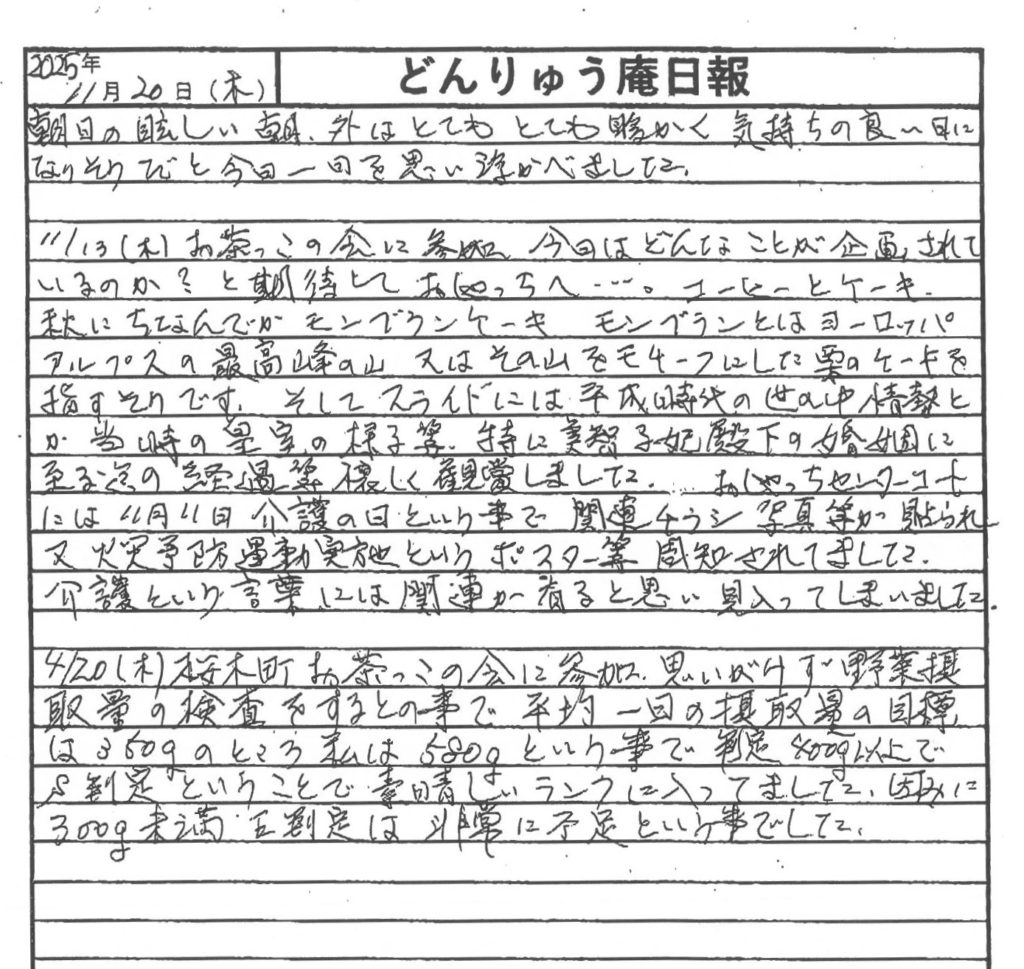 2025年
11月20日(木)
どんりゅう庵日報
朝日の眩しい朝、外はとてもとても暖かく気持ちの良い日に
なりそうだと今日一日を思い浮かべました。
11/13(木)お茶っこの会に参加 今日はどんなことが企画されて
いるのか?と期待して おじゃっちへ…。コーヒーとケーキ、
秋にちなんでか モンブランケーキ モンブランとはヨーロッパ
アルプスの最高峰の山 又はその山をモチーフにした栗のケーキを
指すそうです。そしてスライドには平成時代の世の中情勢と
か当時の皇室の様子等、特に美智子妃殿下の婚姻に
至る迄の経過等懐しく観賞しました。 センターコート
には11月11日 介護の日という事で 関連チラシ 写真等が貼られ
又火災予防運動実施というポスター等周知されてました。
介護という言葉には関連が有ると思い見入ってしまいました。
4/20(木)桜木町お茶っこの会に参加、思いがけず野菜摂
取量の検査をするとの事で 平均一日の摂取量の目標
は350gのところ私は580gという事で 判定 400g以上で
S判定ということで素晴しいランクに入ってました、因みに
300g未満 E判定は非常に不足という事でした。